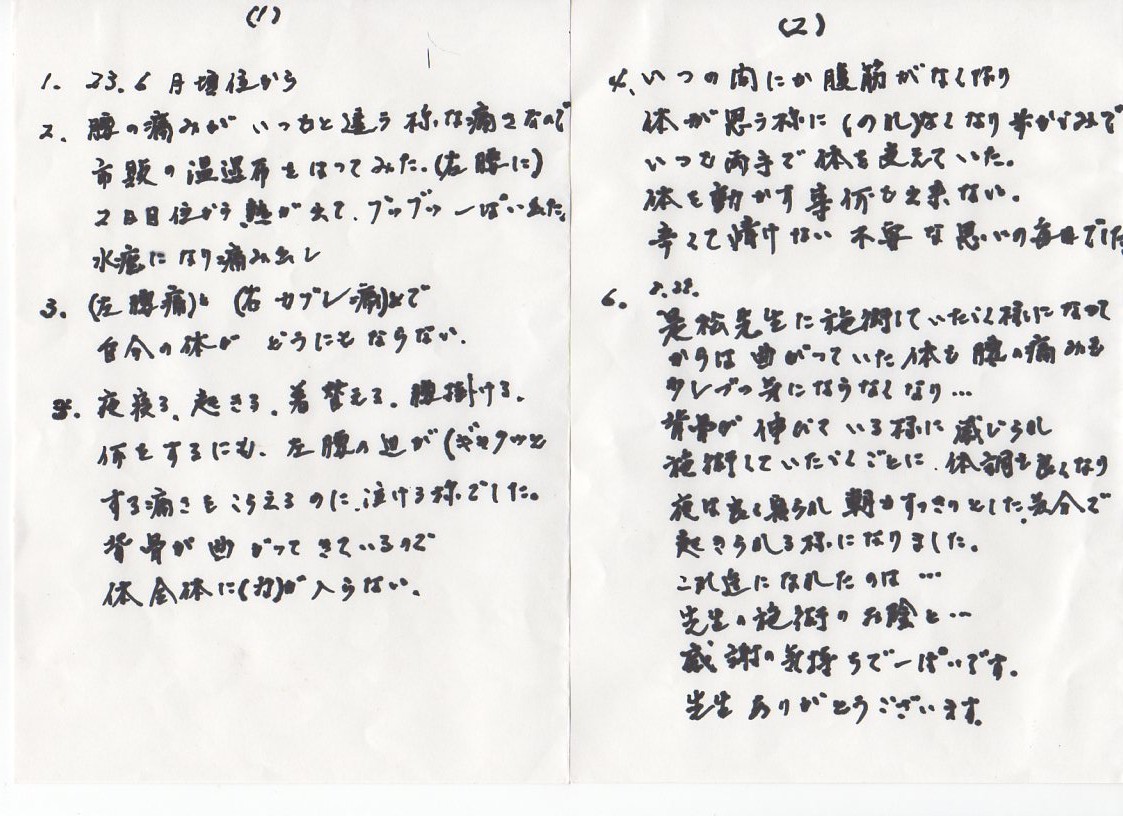 (1)
1. 23.6月頃位から
2. 腰の痛みが いつもと違う 様な痛さなので
市販の温湿布をはってみた。(左腰に)
2日目位から 熱が出て、ブツブツ 一ぱい出た。
水疱になり痛み出し
3. (左腰痛)と (右カブレ痛)とで
自分の体が どうにもならない。
夜寝る、起きる、着替える、腰掛ける、
何をするにも、左腰の辺が(ギャクッと
する痛さをこらえるのに、泣ける様でした。
背骨が曲がってきているので
体全体に(力)が入らない。
(2)
4. いつの間にか腹筋がなくなり
体が思う様に なくなり
いつも両手で体を支えていた。
体を動かす事何も出来ない。
辛くて情けない 不安な思いの毎日でした
6.
是松先生に施術していただく様になって
からは 曲がっていた体も 腰の痛みも
カブレ 気にならなくなり…
背骨が 伸びている様に感じられ
施術していただくごとに、体調も良くなり
夜は良く寝られ 朝もすっきりとした、気分で
起きられる様になりました。
これ迄になれたのは …
先生の施術のお陰と…
感謝の気持ちで一ぱいです。
先生 ありがとうございます。